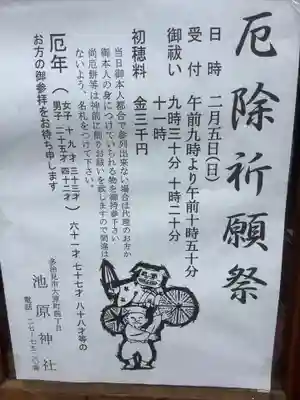 厄除祈願祭
日時 二月五日(日)
受付 午前九時より午前十時五十分
御祓い 九時三十分 十時二十分
十一時
初穂料 金三千円
当日御本人都合で参列出来ない場合は代理のお方か
御本人の身につけていられる物を御持参下さい
尚厄餅等は神前に飾りお祓いを致しますので間違は
ないよう、名札をつけて下さい。
厄年
女子 十九才 三十三才
男子 二十五才 四十二才
六十一才 七十七才 八十八才等の
お方の御参拝をお待ち申します
多治見市大原町
池原神社
電話